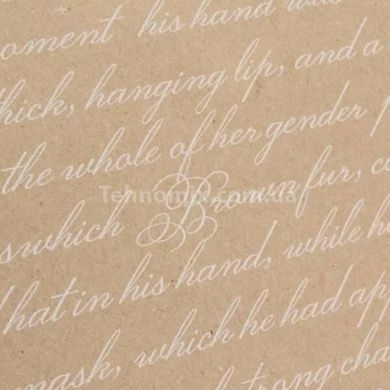 moment his hand wa
thick, hanging lip, and a
the whole of her gender
Tehnomix.com.ua
swhich Brown fur, co
hat in his hand, while he
mask, which he had ap
strong cha